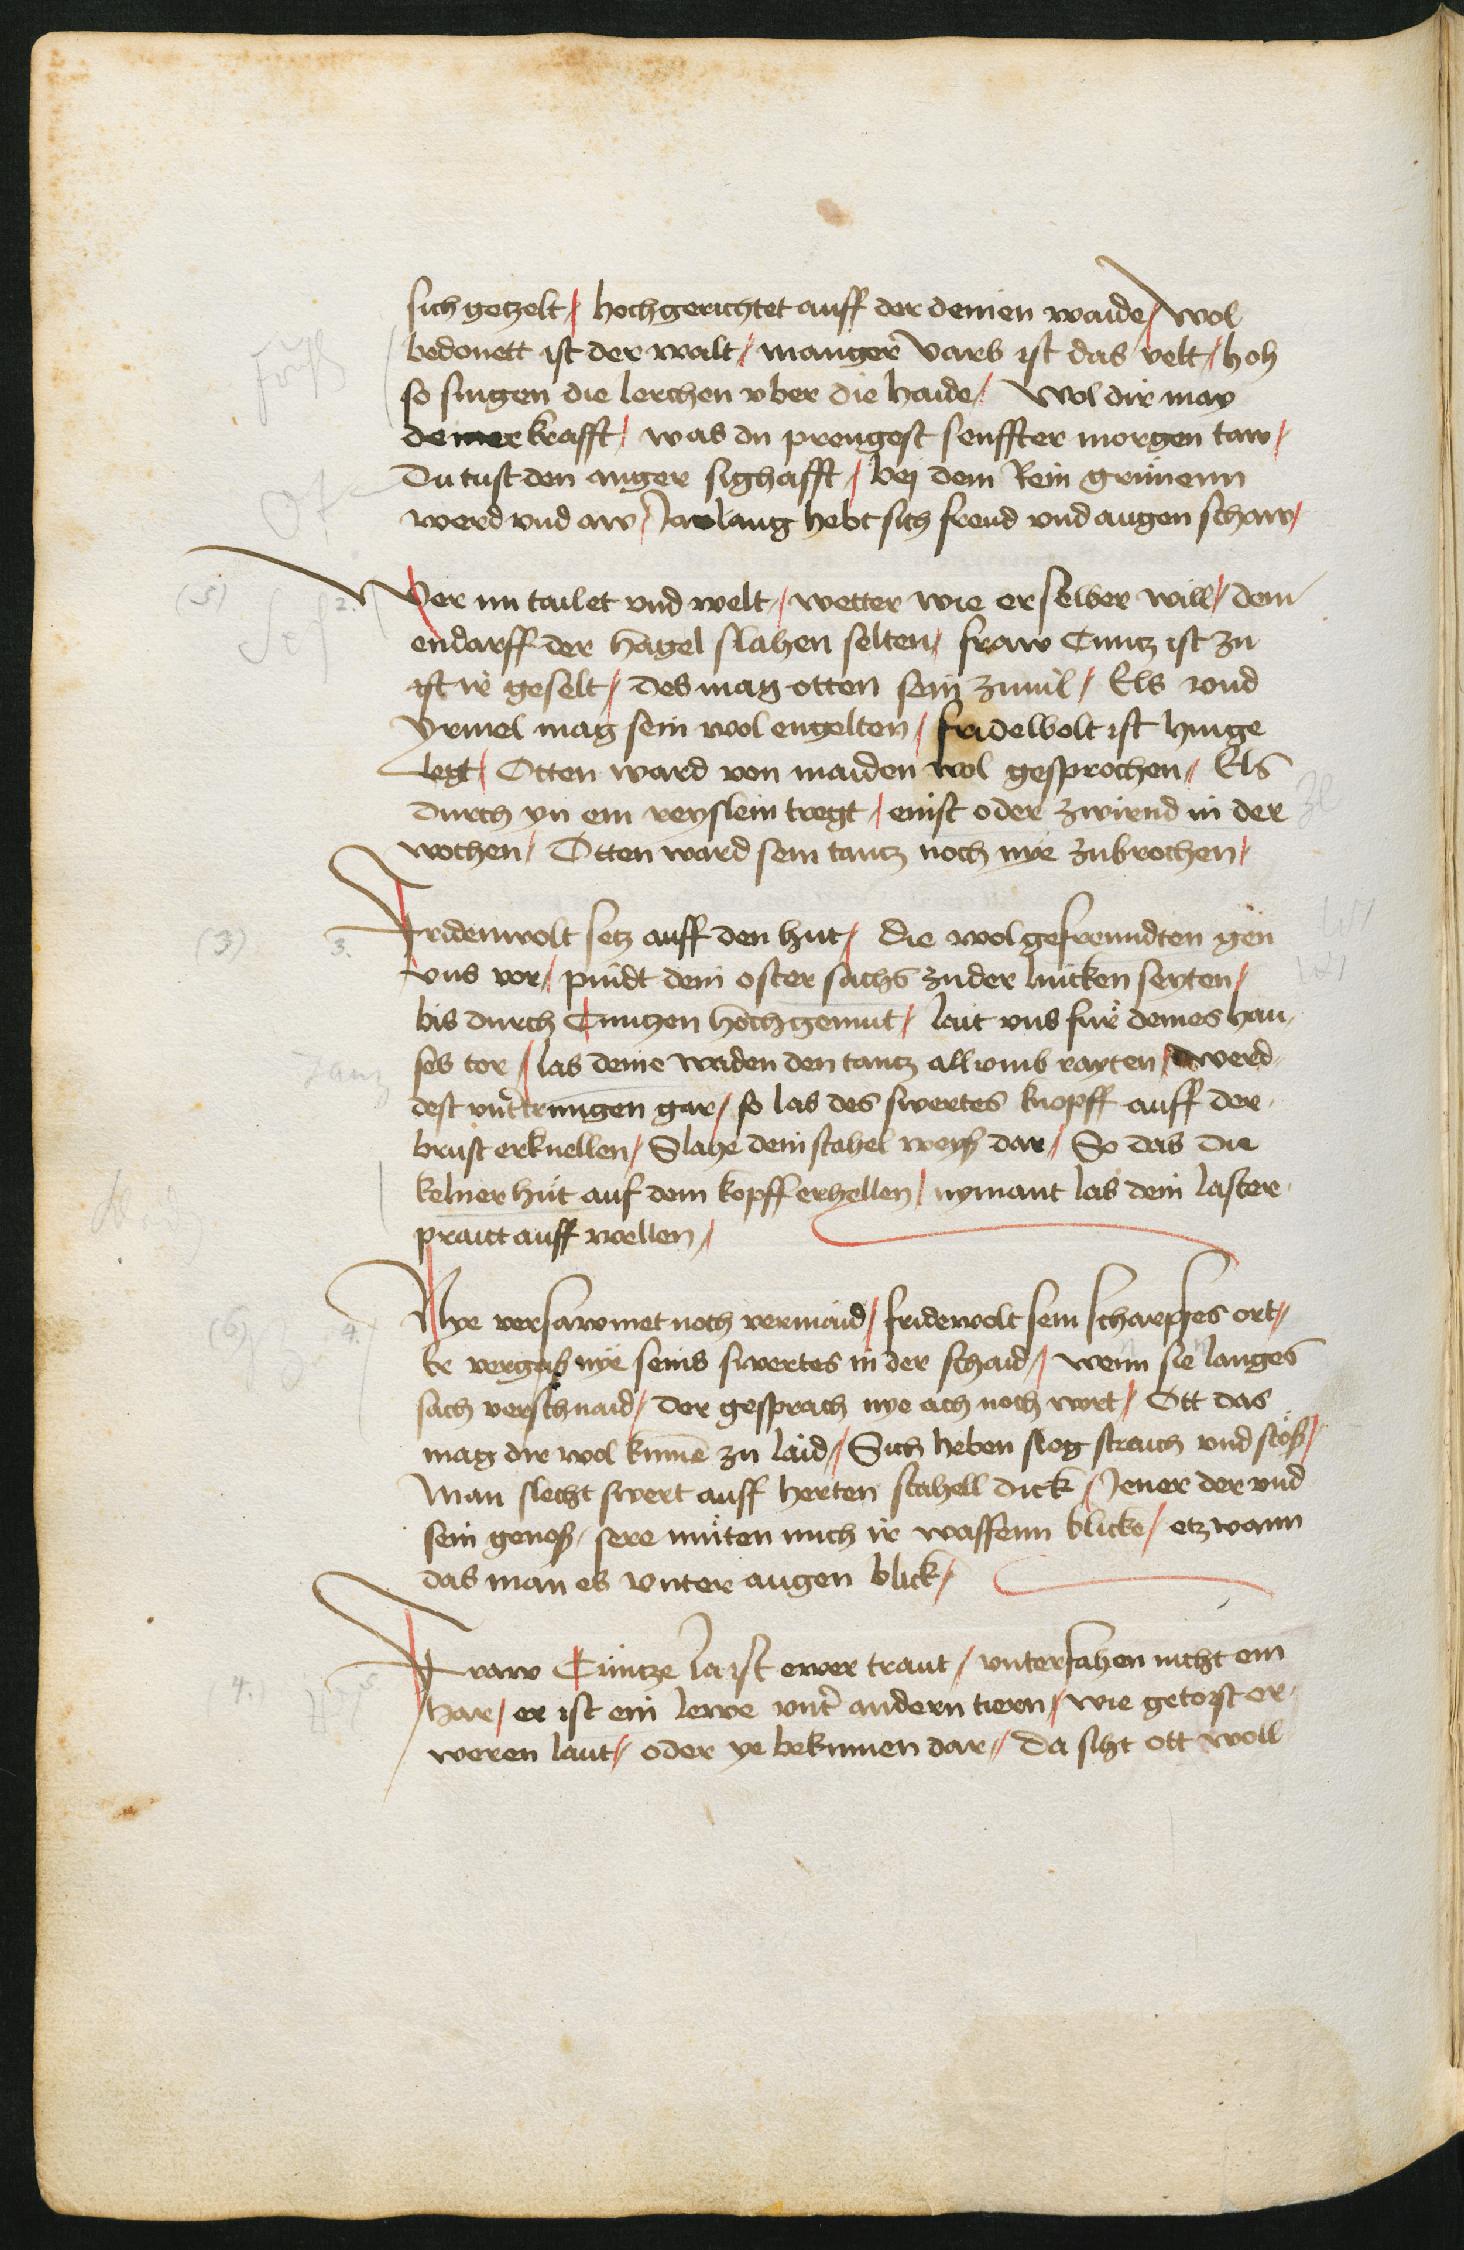 sich getzelt / hochgerichtet auff der deinen waide / Wol
bedonett ist der walt / manger varb ist das velt / hoh
so singen die lerchen vber die haide / Wol dir may
deiner krafft / was du prengest senffter morgen taw /
Du tust den anger sighafft / bej dem Rein grünenn
werd vnd aw / Jarlang hebt sich freud vnd augen schaw /
Wer im tailet vnd welt / wetter wie er selber will / dem
endarff der hagel slahen selten / fraw Cuntz ist zu
ist ir geselt / des mag otten sein zuuil / Els vnd
Yrmel mag sein wol engelten / fridelbolt ist hinge
legt / Otten ward von maiden wol gesprochen / Els
durch yn ein reyslein tregt / einst oder zwirend in der
wochen / Otten ward sein tantz noch nye zubrochen /
3. Fridenwolt setz auff den hut / die wolgefreundten gen
vns vor / pindt dein oster sachs zu der lincken seyten /
bis durch Cuntzen hochgemut / lait vns für deines hau
ses tor / las deine maiden den tantz all vmb rayten / werd
dest vnttrungen gar / so las des swertes knopff auff der
brust erknellen / Slahe dein stahel weyß dar / So das die
kelner hüt auf dem kopff erhellen / nymant las dein laster
praitt auff wellen /
4. Nye versawmet noch vermaid / fridewolt sein scharpfes ort /
Er vergaß nye seins swertes in der schaid / wenn sie langes
sach verschnaid / der gesprach nye ach noch wort / Ott das
mag dir wol kumē zu laid / Sich heben sleg straich vnd stöß /
Man slecht swert auff herten stahell dick / Jener der vnd
sein genoß / sere müten mich ir waffenn blicke / etzwann
das man es vnter augen blick /
Fraw Cüntze laist ewer traut / vntersahen nicht ein
har / er ist ein lewe vnter andern tiern / wie getorst er
weren laut / oder ye bekumen dar / Da siht ott woll